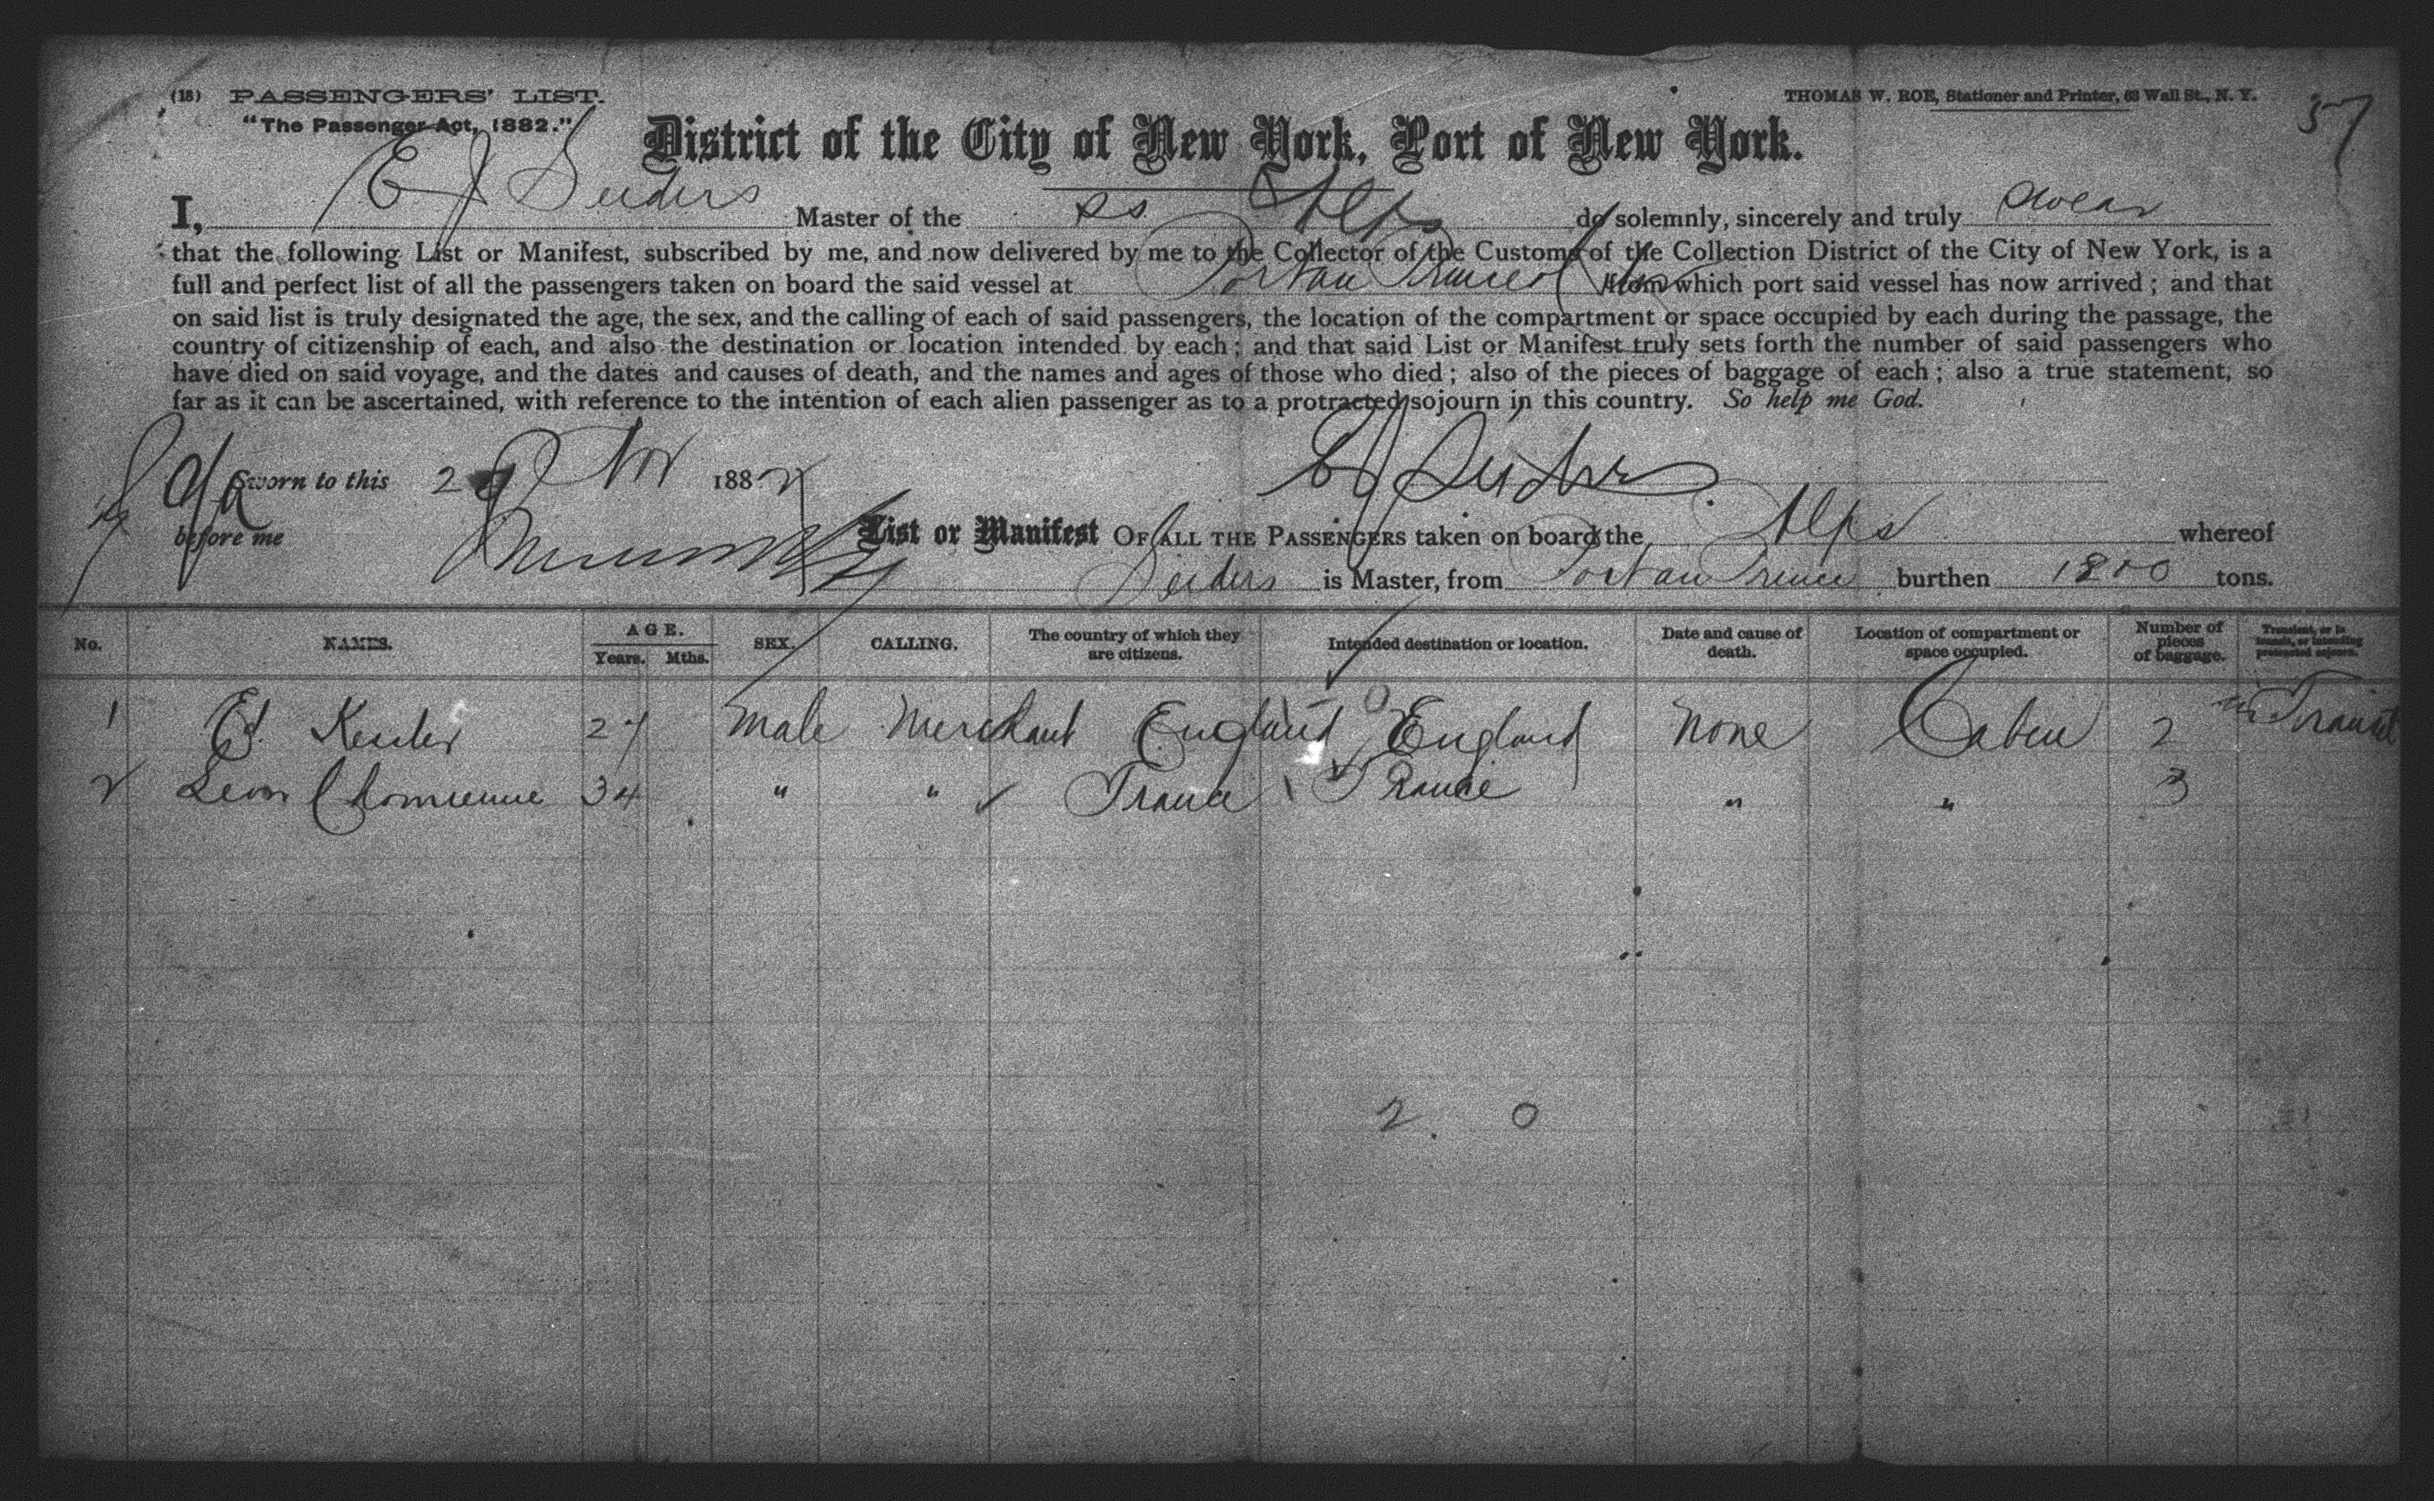 (18) PASSENGERS' LIST.
THOMAS W. ROE, Stationer and Printer, 63 Wall St., N. Y.
57
"The Passenger Act, 1882."
District of the City of New York, Port of New York.
I, E J Seiders Master of the ss Alps do solemnly, sincerely and truly swear
that the following List or Manifest, subscribed by me, and now delivered by me to the Collector of the Customs of the Collection District of the City of New York, is a
full and perfect list of all the passengers taken on board the said vessel at Port au Prince from which port said vessel has now arrived; and that
on said list is truly designated the age, the sex, and the calling of each of said passengers, the location of the compartment or space occupied by each during the passage, the
country of citizenship of each, and also the destination or location intended by each; and that said List or Manifest truly sets forth the number of said passengers who
have died on said voyage, and the dates and causes of death, and the names and ages of those who died; also of the pieces of baggage of each; also a true statement, so
far as it can be ascertained, with reference to the intention of each alien passenger as to a protracted sojourn in this country. So help me God.
Sworn to this 29 Nov 1882 EJ Seiders
before me
List or Manifest OF ALL THE PASSENGERS taken on board the Alps whereof
Seiders is Master, from Port au Prince burthen 1800 tons.
No. NAMES. AGE. Years. Mths. SEX. CALLING. The country of which they are citizens. Intended destination or location. Date and cause of death. Location of compartment or space occupied. Number of pieces of baggage. Transient, or in transit, or intending protracted sojourn.
1 Ed. 27 Male Merchant England England None Cabin 2 in Transit
2 Leon Chomienne 34 " " France France " " 3
2. 0